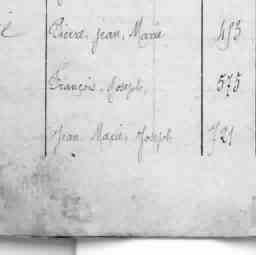 Pierre, Jean, Marie 453
François, Joseph, 575
Jean Marie, Joseph 721